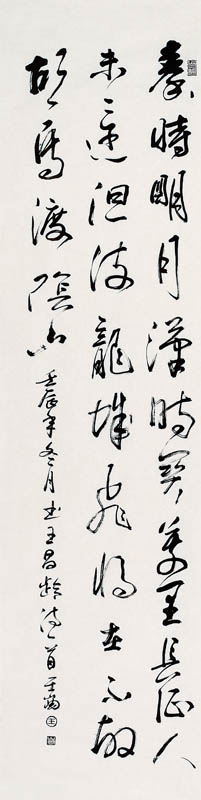 秦時明月漢時關萬里長征人
未還但使龍城飛將在不教
胡馬渡陰山
壬辰年冬月書王昌齡詩一首